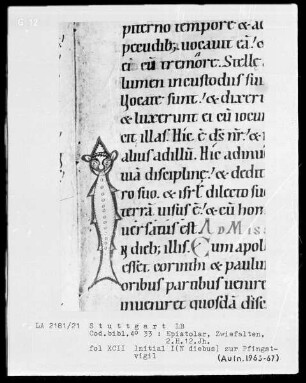 piterno tempore & ac
pecudib; uocauit eā.' o
ci eū tremore. Stelle
lumen in custodus sui
uocate sunt.' & dixerū
& luxerunt ei cū iocun
cit illas. Hic ē ds nr̄.' & n
abitur ad illū. Hic adinue
uiā discipline.' & dedit
ro suo. & isrl̄ dilecto suo
terrā uisus ē.' & cū hom
uersatus est. AD MIS
N dieb; illis. Cum apol
esset corinthi & paulus
oribus partibus ueniret
inueniret quosdā disc
LA 2181/21 Stuttgart LB
Cod.bibl.4º 33 : Epistolar, Zwiefalten,
2.H.12.Jh.
fol XCII Initial I(N diebus) zur Pfingst-
vigil
(Aufn.1965-67)